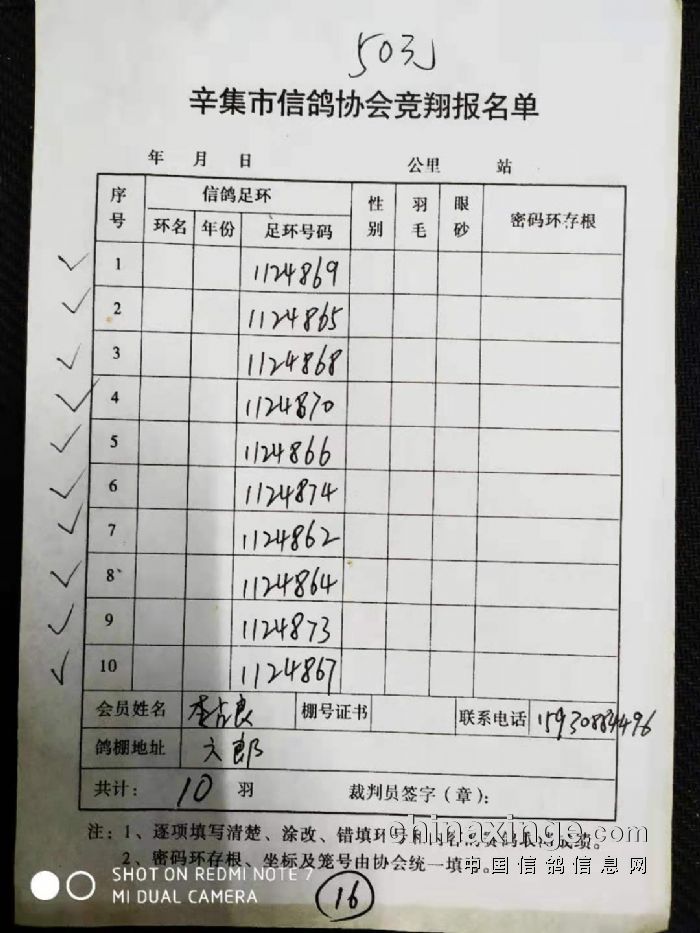 50元
辛集市信鸽协会竞翔报名单
年 月 日 公里 站
序号 信鸽足环 性别 羽毛 眼砂 密码环存根
环名 年份 足环号码
1 1124869
2 1124865
3 1124868
4 1124870
5 1124866
6 1124874
7 1124862
8 1124864
9 1124873
10 1124867
会员姓名 李占良 棚号证书 联系电话 15930884496
鸽棚地址 文郎
共计: 10 羽 裁判员签字(章):
注:1、逐项填写清楚、涂改、错填环号和
成绩。
2、密码环存根、坐标及笼号由协会统一填
chinaxinge.com
中国信鸽信息网
SHOT ON REDMI NOTE 7
MI DUAL CAMERA
16